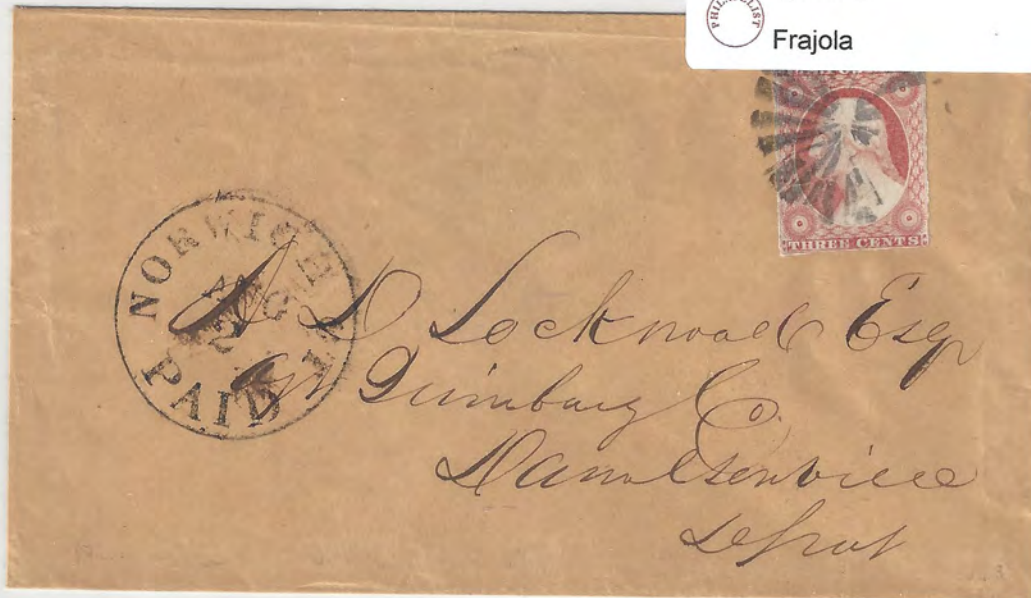 PHILATELIST
Frajola
THREE CENTS
NORWICH
AUG
2
PAID
A D Lockwood Esqr
Agt Quinebaug Co.
Danielsonville
Depot